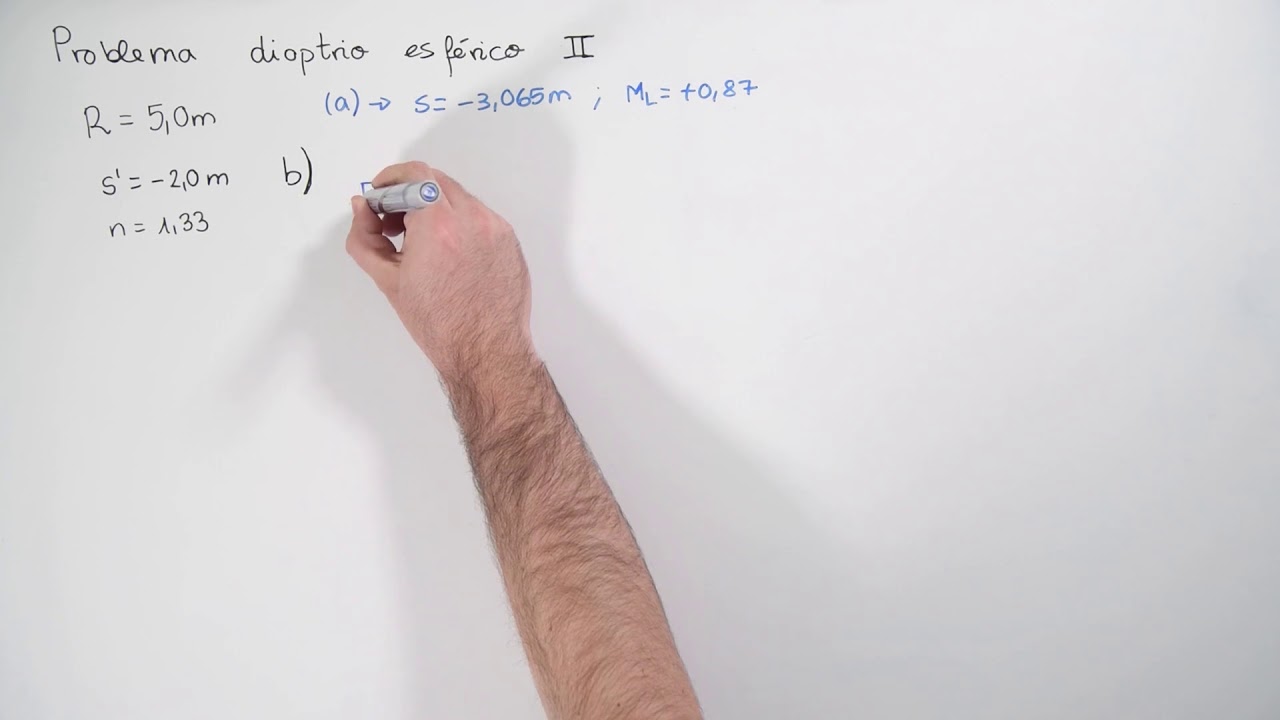 Problema dioptrio esférico II
(a) → s = -3,065m ; ML = +0,87
R = 5,0m
s' = -2,0 m
b)
n = 1,33